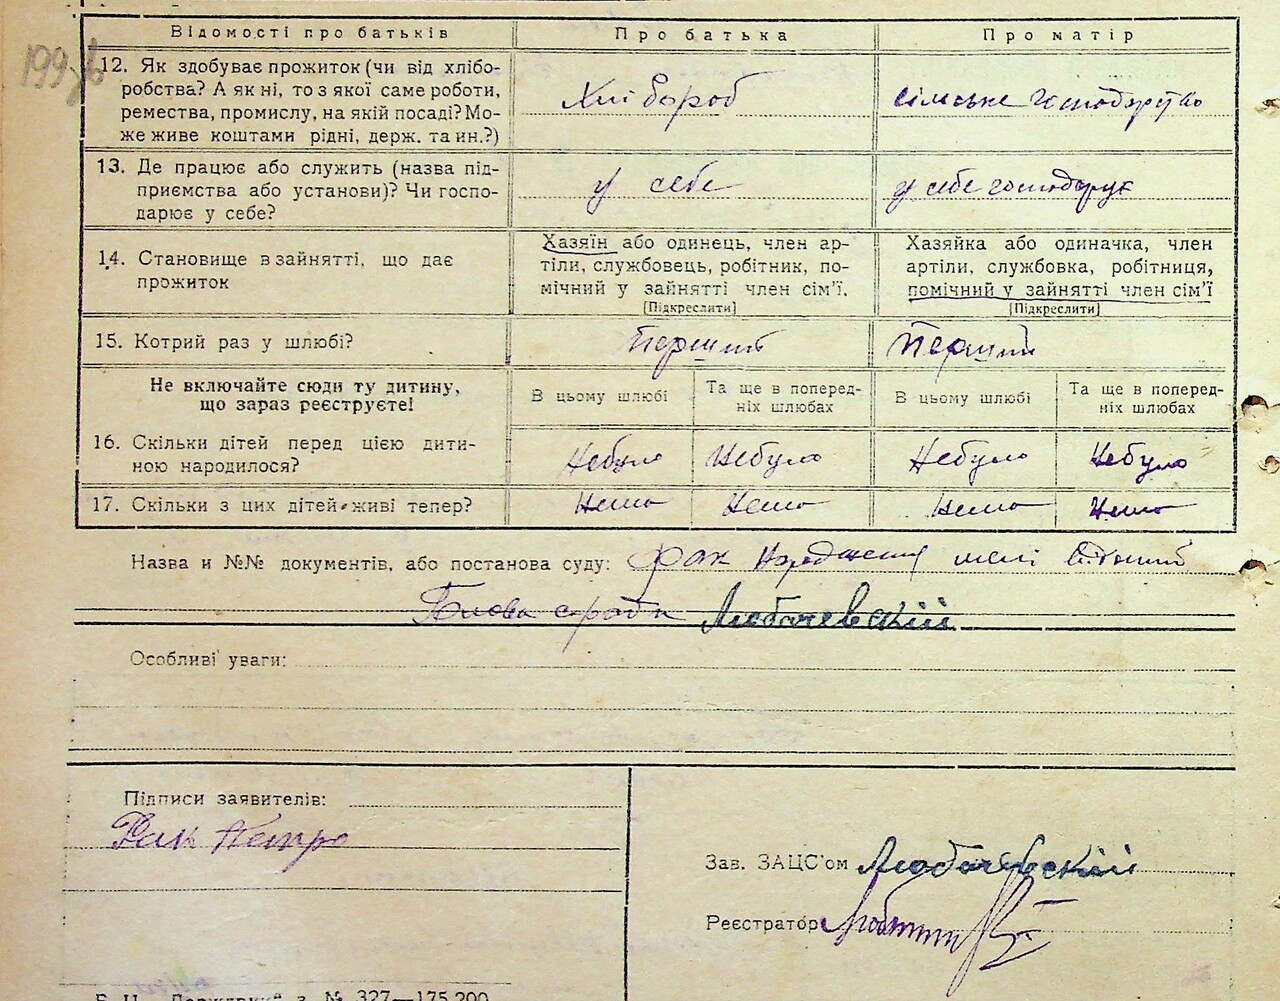 199зв
Відомості про батьків Про батька Про матір
12. Як здобуває прожиток (чи від хлібо-
робства? А як ні, то з якої саме роботи,
ремества, промислу, на якій посаді? Мо-
же живе коштами рідні, держ. та ин.?)
Хлібороб
сільське господарство
13. Де працює або служить (назва під-
приємства або установи)? Чи госпо-
дарює у себе?
у себе
у себе господарує
14. Становище в зайнятті, що дає
прожиток
Хазяїн або одинець, член ар-
тіли, службовець, робітник, по-
мічний у зайнятті член сім'ї.
[Підкреслити]
Хазяйка або одиначка, член
артіли, службовка, робітниця,
помічний у зайнятті член сім'ї
[Підкреслити]
15. Котрий раз у шлюбі? Перший Перший
Не включайте сюди ту дитину,
що зараз реєструєте!
В цьому шлюбі
Та ще в поперед-
ніх шлюбах
В цьому шлюбі
Та ще в поперед-
ніх шлюбах
16. Скільки дітей перед цією дити-
ною народилося?
Небуло Небуло Небуло Небуло
17. Скільки з цих дітей живі тепер? Нема Нема Нема Нема
Назва и №№ документів, або постанова суду: Факт Народження мені відомий
Голова сільради Любачевский
Особливі уваги:
Підписи заявителів:
Петро
Зав. ЗАЦС'ом Любачевский
Реєстратор
№ 327—175.200